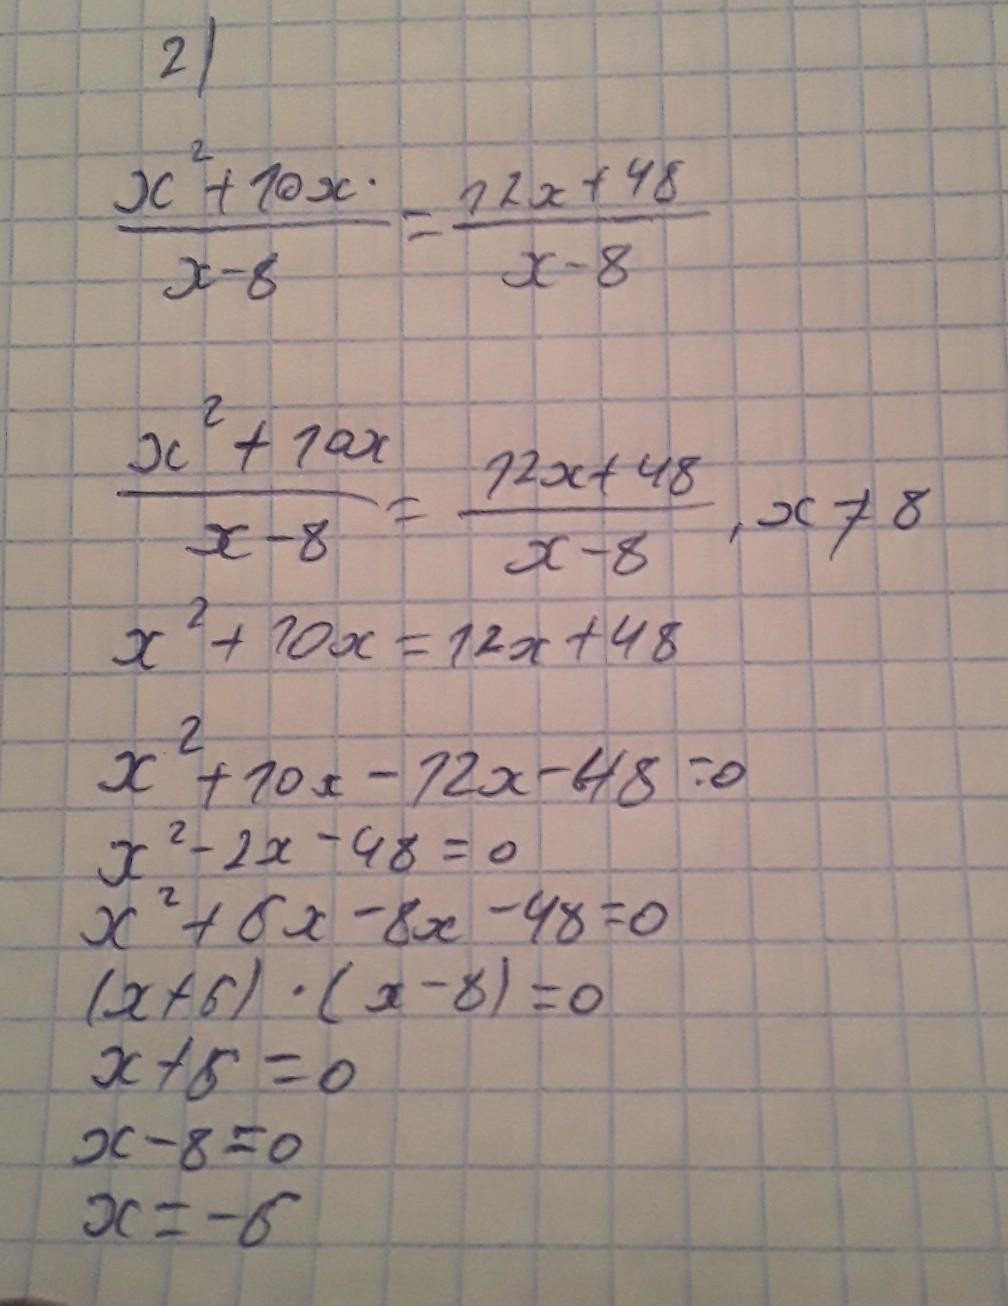 2)
x²+10x·/x-8 = 12x+48/x-8
x²+10x/x-8 = 12x+48/x-8, x≠8
x²+10x=12x+48
x²+10x-12x-48=0
x²-2x-48=0
x²+6x-8x-48=0
(x+6)·(x-8)=0
x+6=0
x-8=0
x=-6